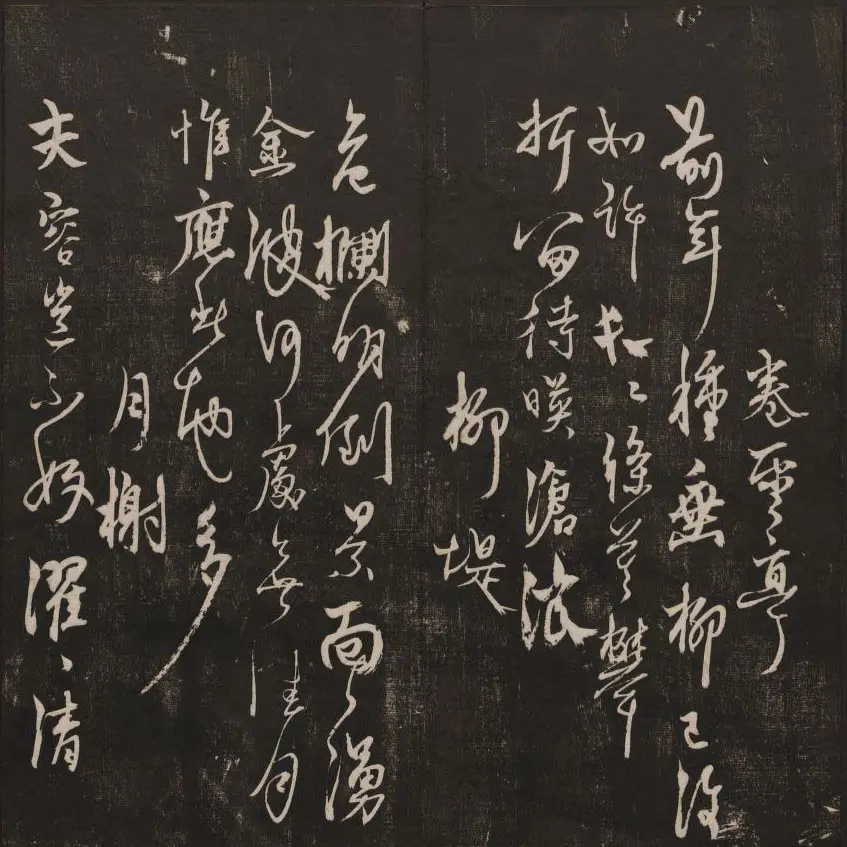 卷雲亭
前年種垂柳已復
如許長〻條莫攀
折留待暎滄浪
柳堤
危欄明倒景面〻湧
金波何處無佳月
惟應此地多
月榭
夫容豈不好濯〻清